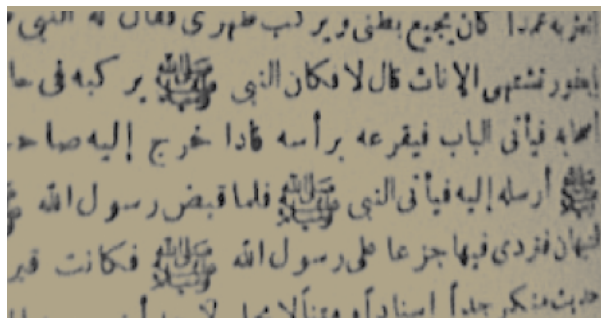 أعثر به عمدا كان يجيع بطني ويركب ظهري فقال له النبي
يعفور تشتهي الإناث قال لا فكان النبي ﷺ يركبه في حا
أصحابه فيأتي الباب فيقرعه برأسه فاذا خرج إليه صاحـ
ﷺ أرسله إليه فيأتي النبي ﷺ فلما قبض رسول الله ﷺ
التيهان فتردى فيها جزعا على رسول الله ﷺ فكانت قبر
حديث منكر جداً اسناداً ومتناً لا يحل لأحد أن